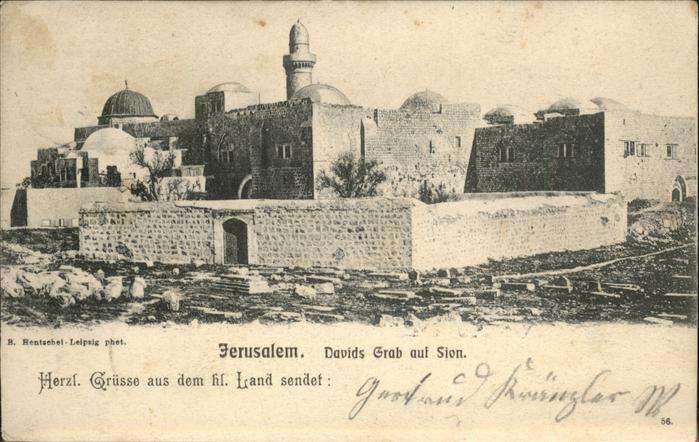 B. Hentschel-Leipzig phot.
Jerusalem. Davids Grab auf Sion.
Herzl. Grüsse aus dem hl. Land sendet :
Gertrud Kränzler
56.